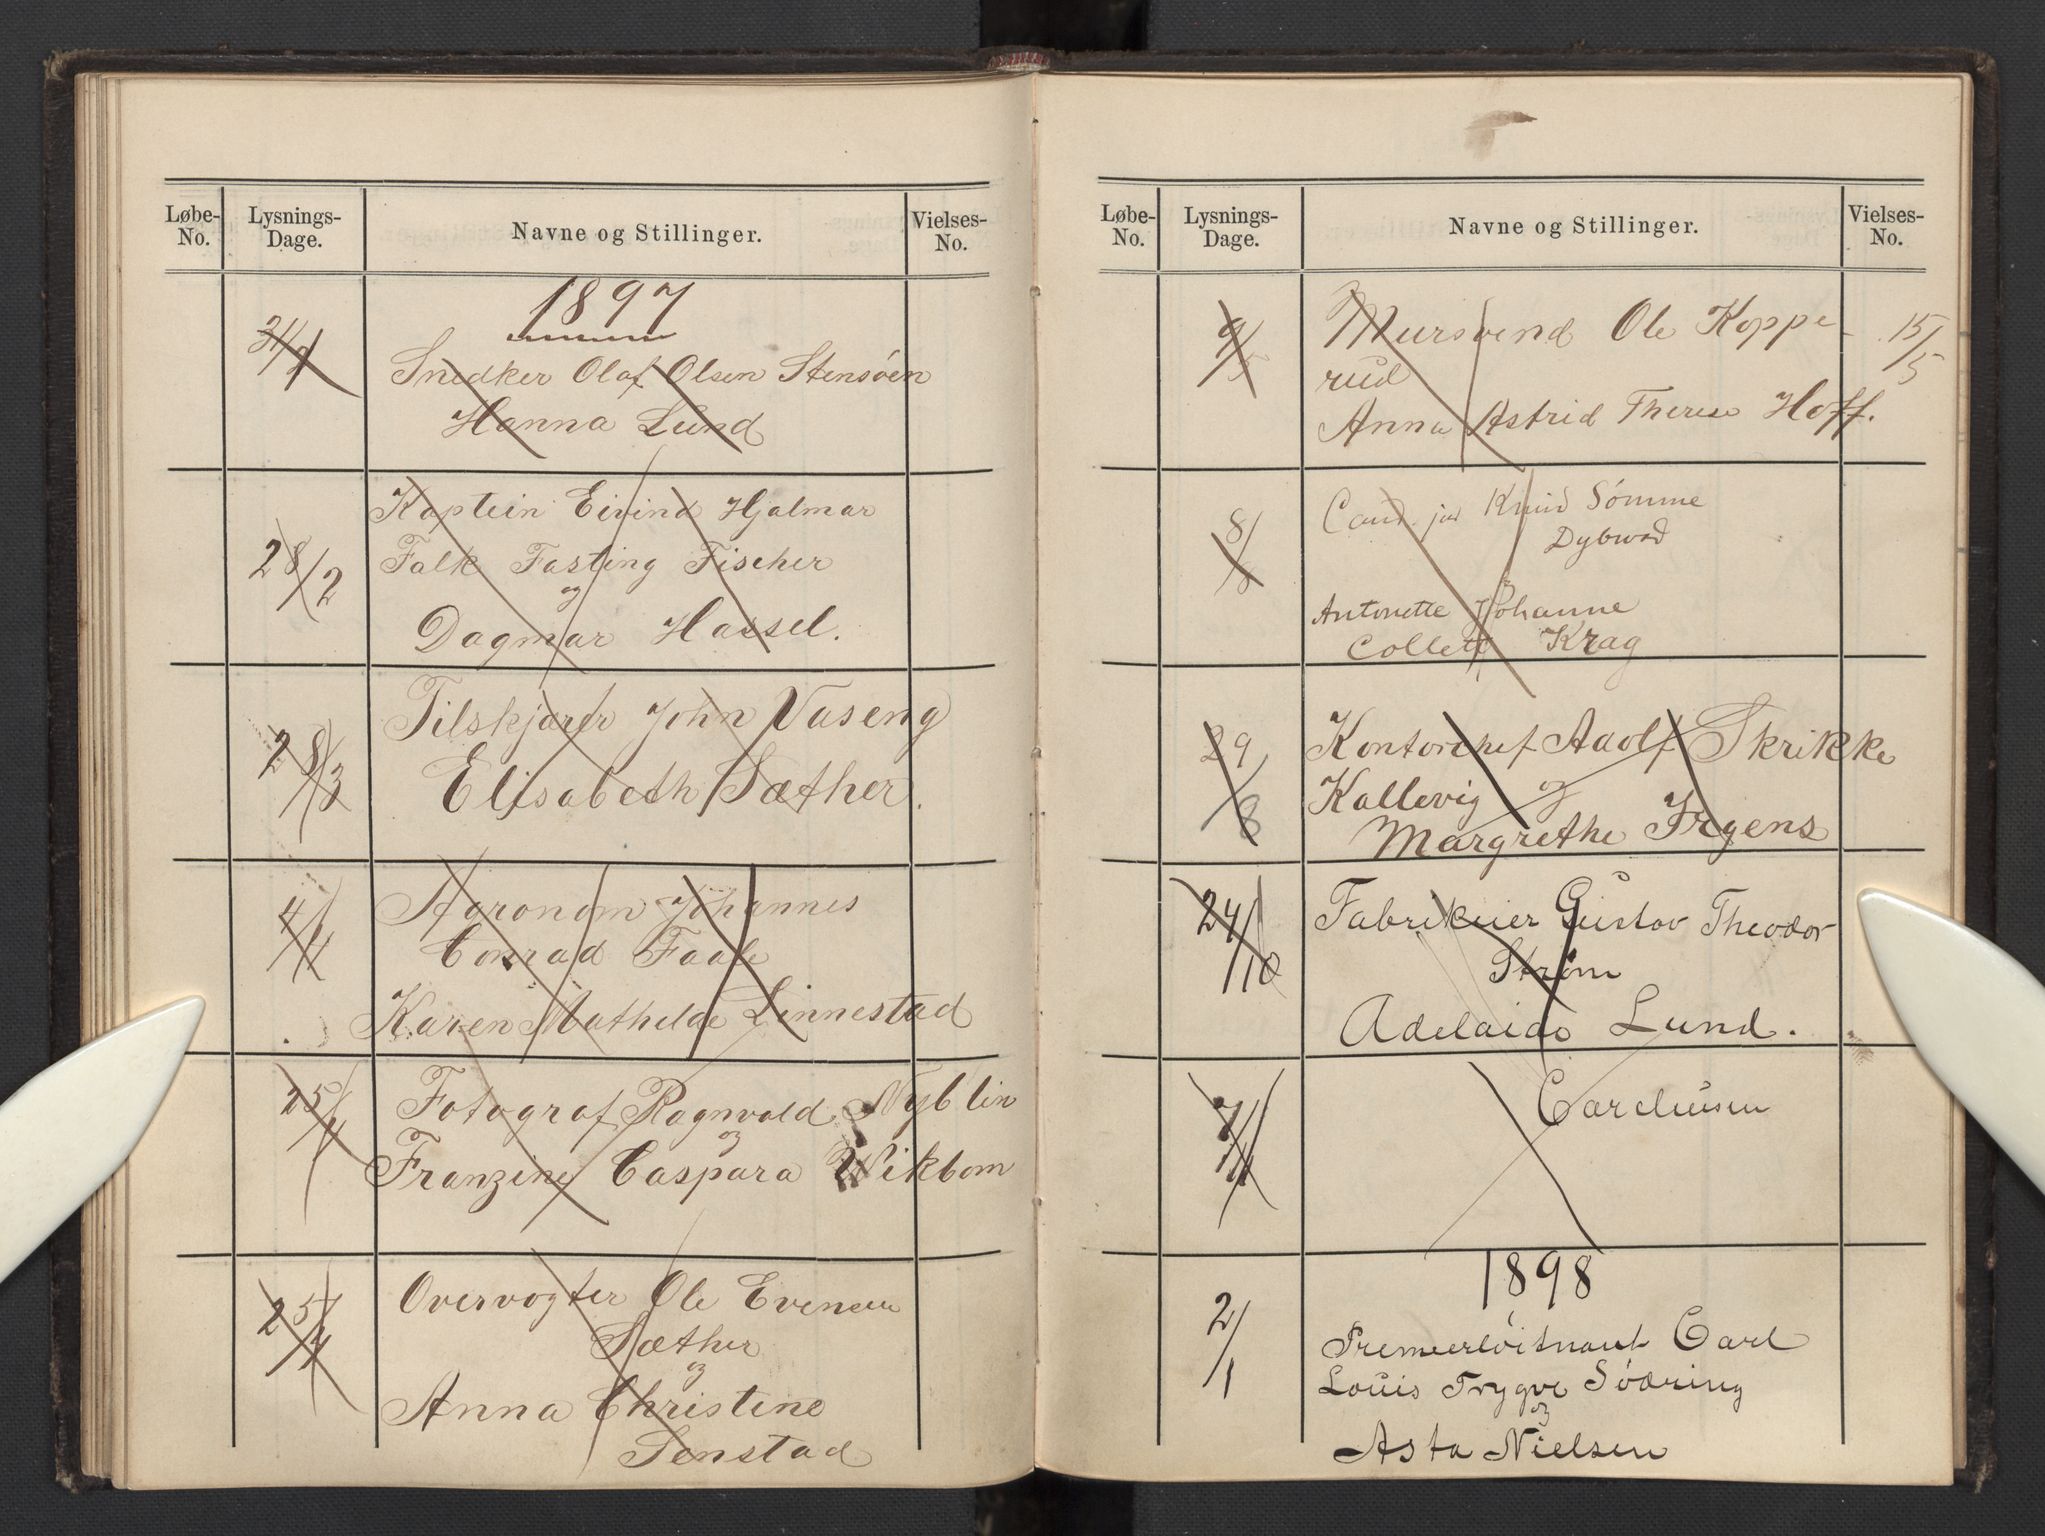 Løbe-No.
Lysnings-Dage.
Navne og Stillinger.
Vielses-No.
1897
Snedker Olaf Olsen Stensöen
Hanna Lund
28/2
Kaptein Eivind Hjalmar
Falk Fasting Fischer
og
Dagmar Hassel.
28/3
Tilskjærer John Vaseng
Elisabeth Sæther.
4/4
Agronom Johannes
Conrad Faale
Karen Mathilde Linnestad
25/4
Fotograf Ragnvald Nyblin
og
Franzine Caspara Wikbom
25/4
Overvogter Ole Evensen
Sæther
og
Anna Christine
Senstad
Løbe-No.
Lysnings-Dage.
Navne og Stillinger.
Vielses-No.
9/5
Mursvend Ole Koppe-
15/5
rud
Anna Astrid Therese Hoff.
8/8
Cand. jur Knud Sömme
Dybwad
og
Antonette Johanne
Collett Krag
29/8
Kontorchef Adolf Skrikke
Kallevig og
Margrethe Irgens
24/10
Fabrikeier Gustav Theodor
Strøm
Adelaide Lund.
7/11
1898
2/1
Premierlöitnant Carl
Louis Trygve Sööring
og
Asta Nielsen